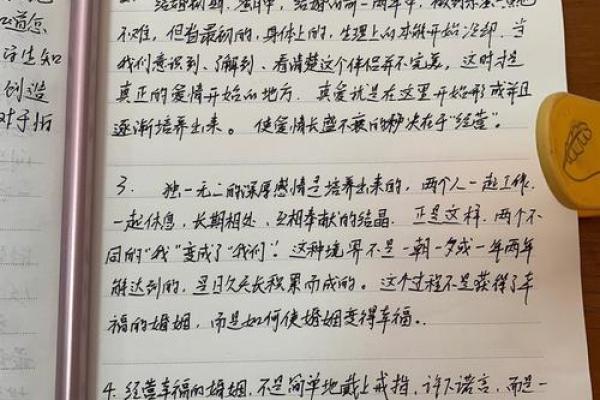 道怎
守生知
创造
对于拓
2. 结婚初期,蜜月中,结婚的前一两年中,做到
不难,但当最初的,身体上的,生理上的本能开始冷却,当
我们意识到、了解到、看清楚这个伴侣并不完美,这时才是
真正的爱情开始的地方. 真爱就是在这里开始形成并且
逐渐培养出来。使爱情长盛不衰的秘诀在于"经营"。
3. 独一无二的深厚感情是培养出来的,两个人一起工作.
一起休息,长期相处、互相奉献的结晶. 正是这样,两个不
同的"我"变成了"我们"! 这种境界不是一朝一夕或一年两年
能达到的,是日久天长积累而成的。这个过程不是获得了幸
福的婚姻,而是如何使婚姻变得幸福..
4. 经营幸福的婚姻,不是简单地戴上戒指,许下诺言,而是一